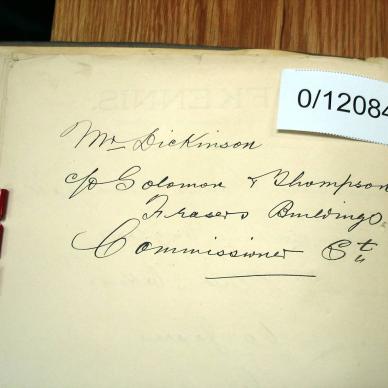 0/12084
Mr Dickinson
c/o Solomon & Thompson
Frasers Buildings
Commissioner St